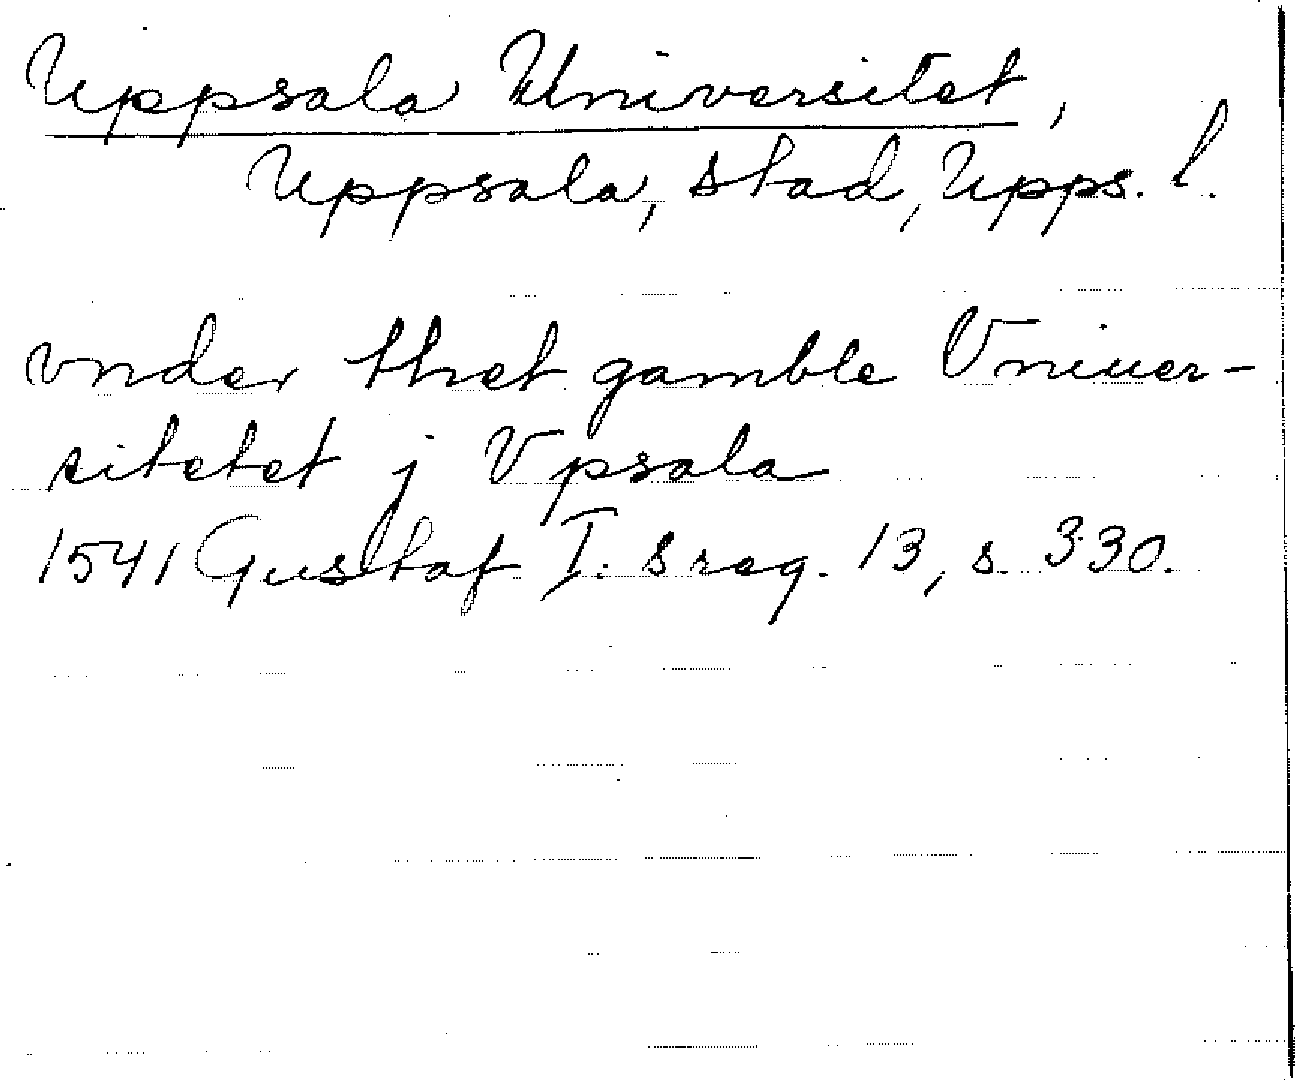 Uppsala Universitet,
Uppsala, stad, Upps. l.
vnder thet gamble Vniuer-
sitetet j Vpsala
1541 Gustaf I:s reg. 13, s. 330.